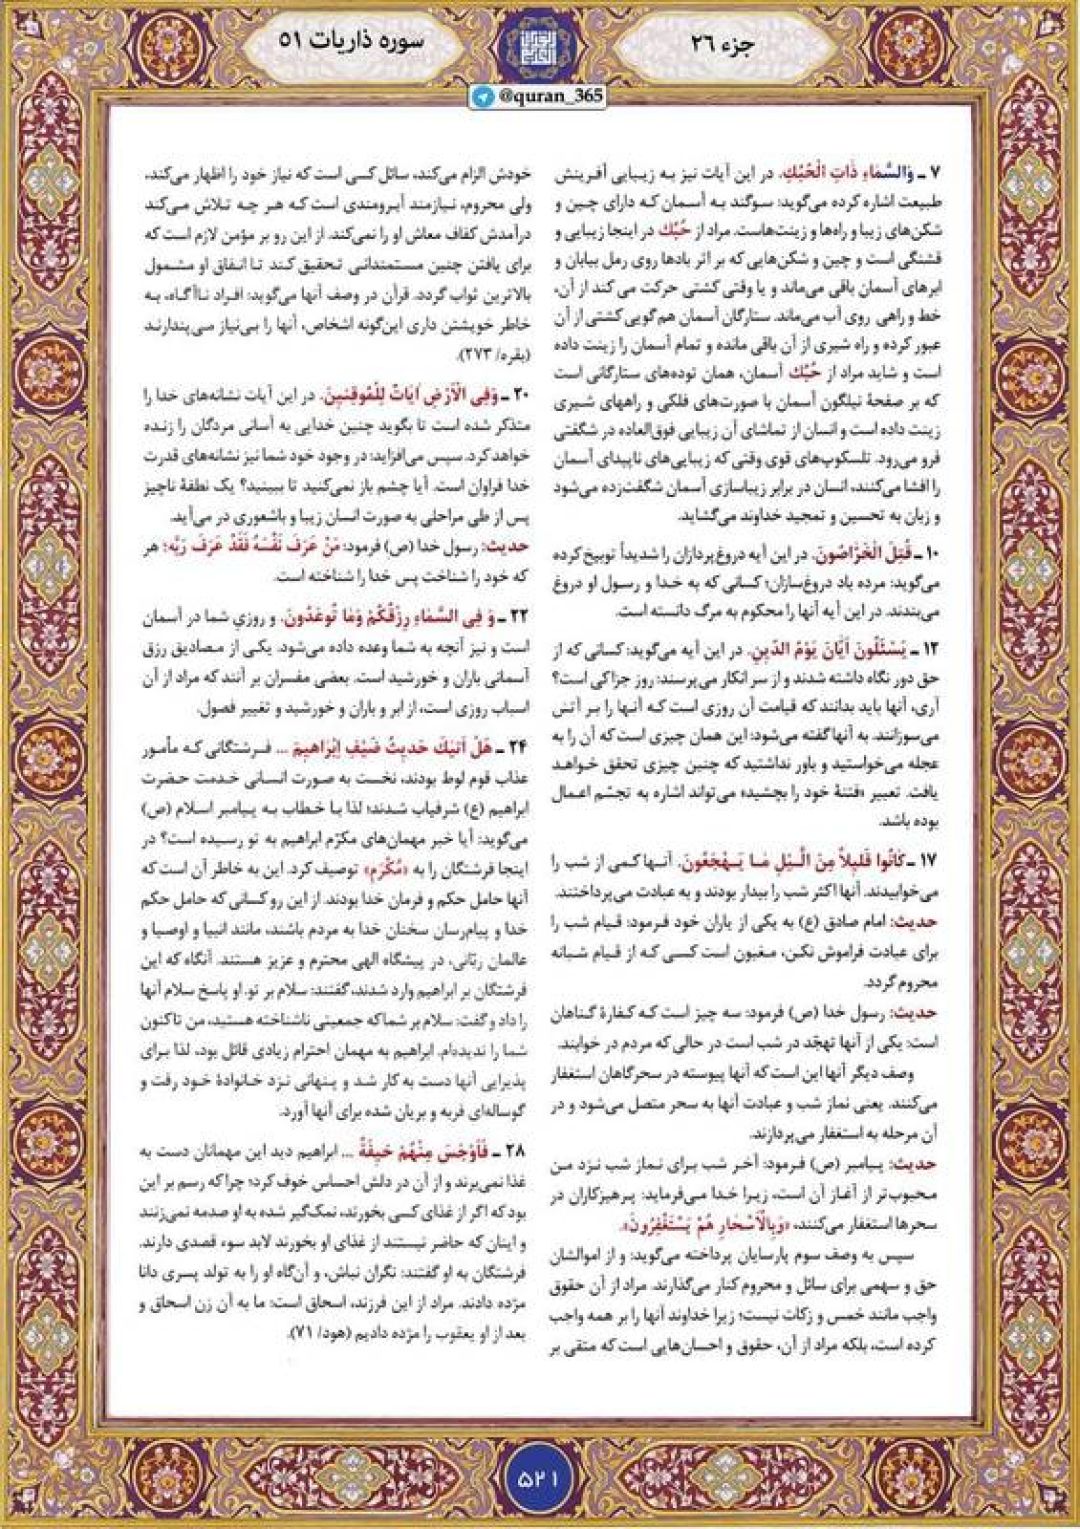 جزء ۲۶
سوره ذاریات ۵۱
@quran_365
۷ ـ وَالسَّمَاءِ ذَاتِ الْحُبُكِ. در این آیات نیز به زیبایی آفرینش
طبیعت اشاره کرده می‌گوید: سوگند به آسمان که دارای چین و
شکن‌های زیبا و راه‌ها و زینت‌هاست. مراد از حُبُك در اینجا زیبایی و
قشنگی است و چین و شکن‌هایی که بر اثر بادها روی رمل بیابان و
ابرهای آسمان باقی می‌ماند و یا وقتی کشتی حرکت می‌کند از آن،
خط و راهی روی آب می‌ماند. ستارگان آسمان هم گویی کشتی از آن
عبور کرده و راه شیری از آن باقی مانده و تمام آسمان را زینت داده
است و شاید مراد از حُبُك آسمان، همان توده‌های ستارگانی است
که بر صفحهٔ نیلگون آسمان با صورت‌های فلکی و راههای شیری
زینت داده است و انسان از تماشای آن زیبایی فوق‌العاده در شگفتی
فرو می‌رود. تلسکوپ‌های قوی وقتی که زیبایی‌های ناپیدای آسمان
را افشا می‌کنند، انسان در برابر زیباسازی آسمان شگفت‌زده می‌شود
و زبان به تحسین و تمجید خداوند می‌گشاید.
۱۰ ـ قُتِلَ الْخَرَّاصُونَ. در این آیه دروغ‌پردازان را شدیداً توبیخ کرده
می‌گوید: مرده باد دروغ‌سازان؛ کسانی که به خدا و رسول او دروغ
می‌بندند. در این آیه آنها را محکوم به مرگ دانسته است.
۱۲ ـ یَسْئَلُونَ اَیَّانَ یَوْمُ الدِّینِ. در این آیه می‌گوید: کسانی که از
حق دور نگاه داشته شدند و از سر انکار می‌پرسند: روز جزا کی است؟
آری، آنها باید بدانند که قیامت آن روزی است که آنها را بر آتش
می‌سوزانند. به آنها گفته می‌شود: این همان چیزی است که آن را به
عجله می‌خواستید و باور نداشتید که چنین چیزی تحقق خواهد
یافت. تعبیر «فتنهٔ خود را بچشید» می‌تواند اشاره به تجسّم اعمال
بوده باشد.
۱۷ ـ کَانُوا قَلِیلاً مِنَ الَّیْلِ مَا یَهْجَعُونَ. آنها کمی از شب را
می‌خوابیدند. آنها اکثر شب را بیدار بودند و به عبادت می‌پرداختند.
حدیث: امام صادق (ع) به یکی از یاران خود فرمود: قیام شب را
برای عبادت فراموش نکن، مغبون است کسی که از قیام شبانه
محروم گردد.
حدیث: رسول خدا (ص) فرمود: سه چیز است که کفارهٔ گناهان
است: یکی از آنها تهجّد در شب است در حالی که مردم در خوابند.
وصف دیگر آنها این است که آنها پیوسته در سحرگاهان استغفار
می‌کنند. یعنی نماز شب و عبادت آنها به سحر متصل می‌شود و در
آن مرحله به استغفار می‌پردازند.
حدیث: پیامبر (ص) فرمود: آخر شب برای نماز شب نزد من
محبوب‌تر از آغاز آن است، زیرا خدا می‌فرماید: پرهیزکاران در
سحرها استغفار می‌کنند، «وَبِالْاَسْحَارِ هُمْ یَسْتَغْفِرُونَ».
سپس به وصف سوم پارسایان پرداخته می‌گوید: و از اموالشان
حق و سهمی برای سائل و محروم کنار می‌گذارند. مراد از آن حقوق
واجب مانند خمس و زکات نیست؛ زیرا خداوند آنها را بر همه واجب
کرده است، بلکه مراد از آن، حقوق و احسان‌هایی است که متقی بر
خودش الزام می‌کند، سائل کسی است که نیاز خود را اظهار می‌کند،
ولی محروم، نیازمند آبرومندی است که هر چه تلاش می‌کند
درآمدش کفاف معاش او را نمی‌کند. از این رو بر مؤمن لازم است که
برای یافتن چنین مستمندانی تحقیق کند تا انفاق او مشمول
بالاترین ثواب گردد. قرآن در وصف آنها می‌گوید: افراد ناآگاه، به
خاطر خویشتن داری این‌گونه اشخاص، آنها را بی‌نیاز می‌پندارند
(بقره/ ۲۷۳).
۲۰ ـ وَفِی الْاَرْضِ اٰیَاتٌ لِلْمُوقِنِینَ. در این آیات نشانه‌های خدا را
متذکر شده است تا بگوید چنین خدایی به آسانی مردگان را زنده
خواهد کرد. سپس می‌افزاید: در وجود خود شما نیز نشانه‌های قدرت
خدا فراوان است. آیا چشم باز نمی‌کنید تا ببینید؟ یک نطفهٔ ناچیز
پس از طی مراحلی به صورت انسان زیبا و باشعوری در می‌آید.
حدیث: رسول خدا (ص) فرمود: مَنْ عَرَفَ نَفْسَهُ فَقَدْ عَرَفَ رَبَّه؛ هر
که خود را شناخت پس خدا را شناخته است.
۲۲ ـ وَ فِی السَّمَاءِ رِزْقُکُمْ وَمَا تُوعَدُونَ. و روزیِ شما در آسمان
است و نیز آنچه به شما وعده داده می‌شود. یکی از مصادیق رزق
آسمانی باران و خورشید است. بعضی مفسران بر آنند که مراد از آن
اسباب روزی است، از ابر و باران و خورشید و تغییر فصول.
۲۴ ـ هَلْ اَتٰیكَ حَدِیثُ ضَیْفِ اِبْرَاهِیمَ ... فرشتگانی که مأمور
عذاب قوم لوط بودند، نخست به صورت انسانی خدمت حضرت
ابراهیم (ع) شرفیاب شدند؛ لذا با خطاب به پیامبر اسلام (ص)
می‌گوید: آیا خبر مهمان‌های مکرّم ابراهیم به تو رسیده است؟ در
اینجا فرشتگان را به «مُکْرَم» توصیف کرد. این به خاطر آن است که
آنها حامل حکم و فرمان خدا بودند. از این رو کسانی که حامل حکم
خدا و پیام‌رسان سخنان خدا به مردم باشند، مانند انبیا و اوصیا و
عالمان ربّانی، در پیشگاه الهی محترم و عزیز هستند. آنگاه که این
فرشتگان بر ابراهیم وارد شدند، گفتند: سلام بر تو. او پاسخ سلام آنها
را داد و گفت: سلام بر شما که جمعیتی ناشناخته هستید، من تاکنون
شما را ندیده‌ام. ابراهیم به مهمان احترام زیادی قائل بود، لذا برای
پذیرایی آنها دست به کار شد و پنهانی نزد خانوادهٔ خود رفت و
گوساله‌ای فربه و بریان شده برای آنها آورد.
۲۸ ـ فَاَوْجَسَ مِنْهُمْ خِیفَةً ... ابراهیم دید این مهمانان دست به
غذا نمی‌برند و از آن در دلش احساس خوف کرد؛ چرا که رسم بر این
بود که اگر از غذای کسی بخورند، نمک‌گیر شده به او صدمه نمی‌زنند
و اینان که حاضر نیستند از غذای او بخورند لابد سوء قصدی دارند.
فرشتگان به او گفتند: نگران نباش، و آن‌گاه او را به تولد پسری دانا
مژده دادند. مراد از این فرزند، اسحاق است: ما به آن زن اسحاق و
بعد از او یعقوب را مژده دادیم (هود/ ۷۱).
۵۲۱